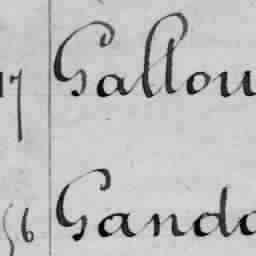 17 Gallou
56 Gando